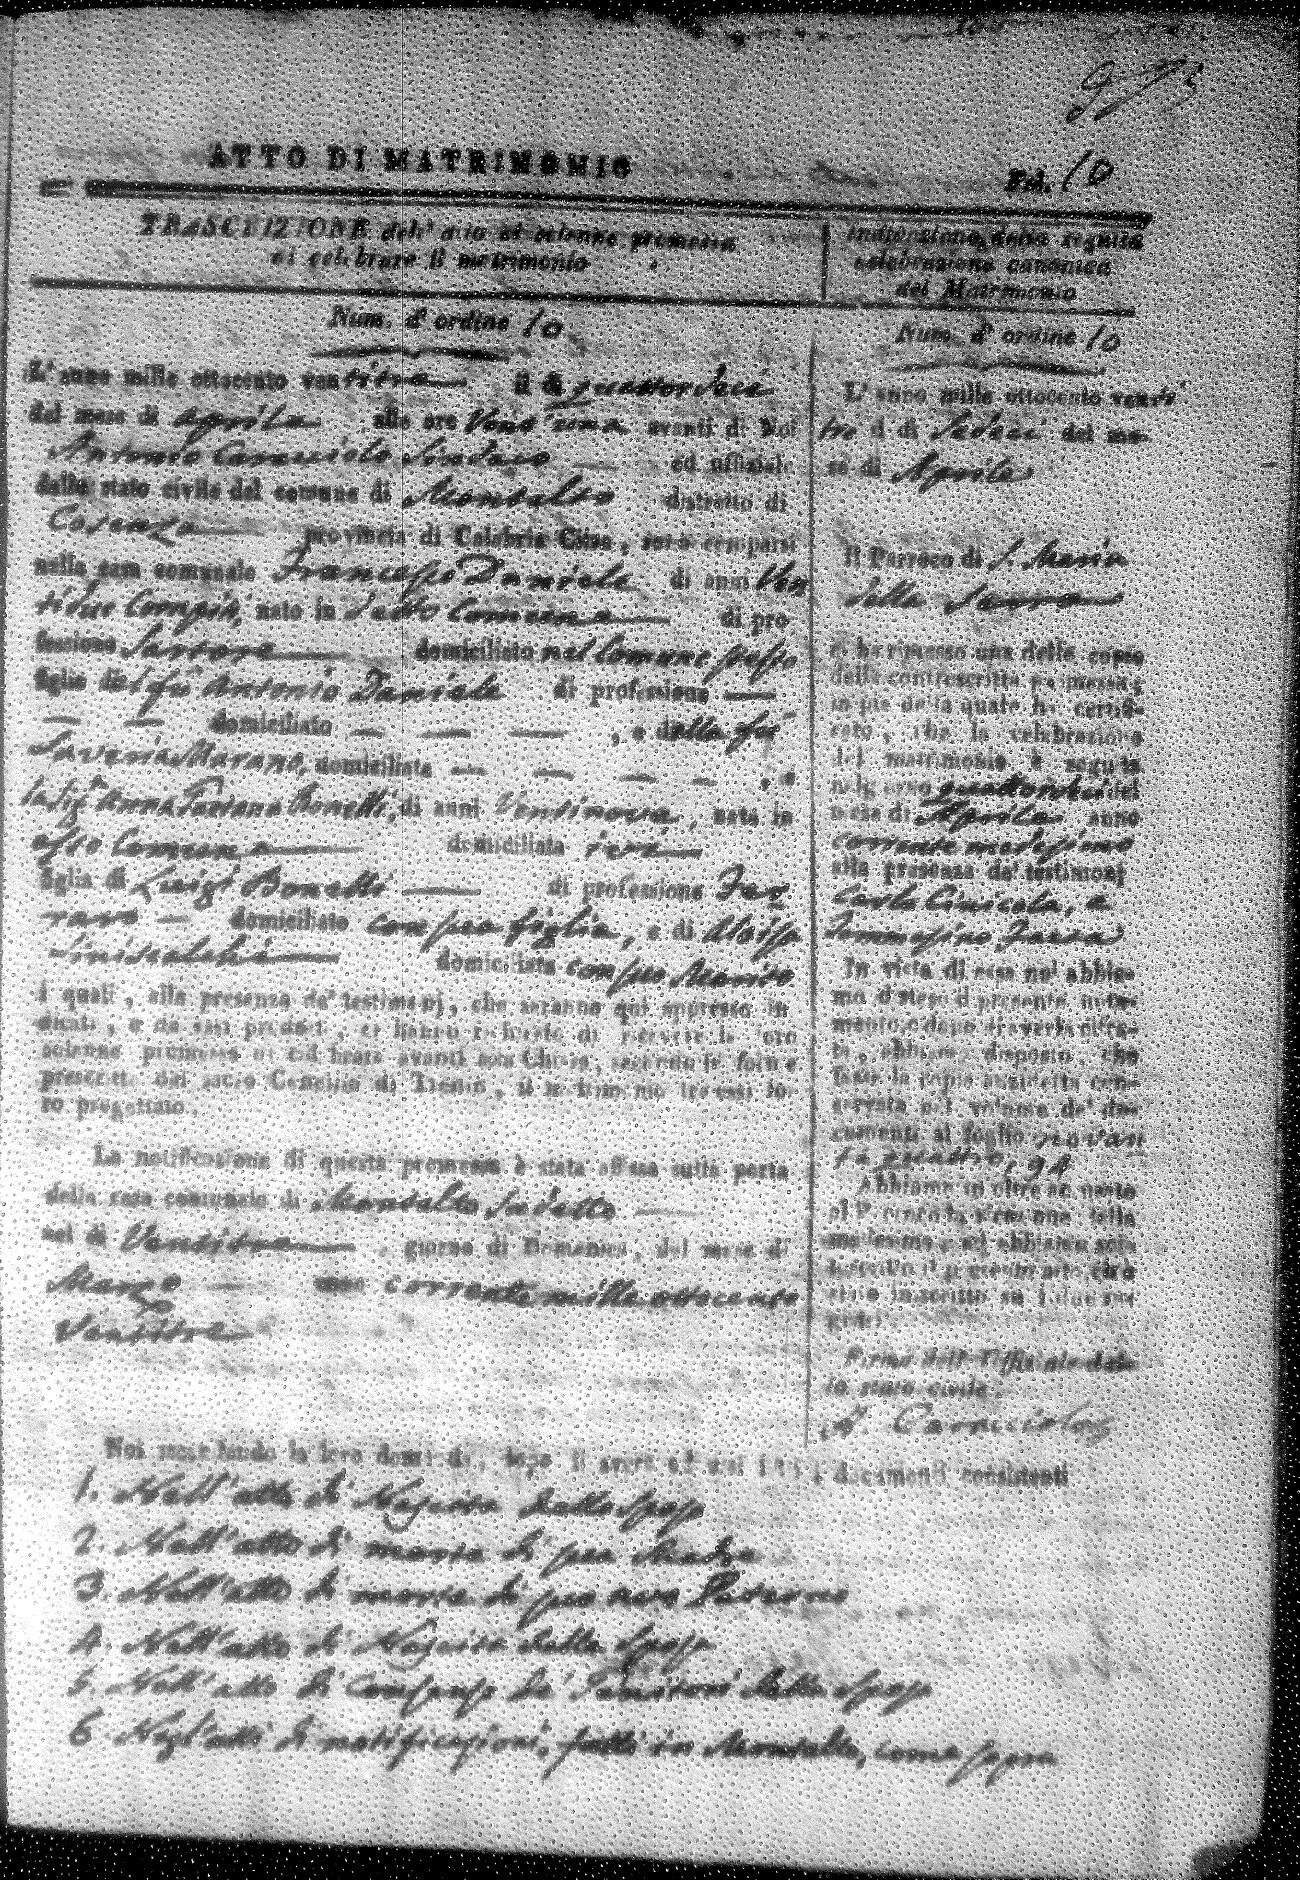 ATTO DI MATRIMONIO
Fol. 10
TRASCRIZIONE dell' atto di solenne promessa
di celebrare il matrimonio
Num. d' ordine 10
L' anno mille ottocento ventitre il dì quattordeci
del mese di Aprile alle ore Vent'una avanti di Noi
Antonio Caracciolo Sindaco ed uffiziale
dello stato civile del comune di Montalto distretto di
Cosenza provincia di Calabria Citra, sono comparsi
nella casa comunale Francesco Daniele di anni Ven
tidue compiti, nato in detto Comune di pro
fessione Sartore domiciliato nel Comune stesso
figlio del fu Antonio Daniele di professione
domiciliato , e della fu
Saveria Marano, domiciliata , e
la Sig.ra Anna Bonelli, di anni Ventinove, nata in
esso Comune domiciliata ivi
figlia di Luigi Bonelli di professione Fer
raro domiciliato con sua figlia, e di Aloisa
Siniscalchi domiciliata con suo Marito
i quali, alla presenza de' testimonj, che saranno qui appresso in
dicati, e da essi prodotti, ci hanno richiesto di ricevere la loro
solenne promessa di celebrare avanti alla Chiesa, secondo le forme
prescritte dal sacro Concilio di Trento, il matrimonio tra essi lo-
ro progettato.
La notificazione di questa promessa è stata affissa sulla porta
della casa comunale di Montalto sudetto
nel dì Ventitre giorno di Domenica, del mese di
Marzo corrente mille ottocento
Ventitre
Indicazione della seguita
celebrazione canonica
del Matrimonio
Num. d' ordine 10
L' anno mille ottocento venti
tre il dì Sedeci del me-
se di Aprile
Il Parroco di S. Maria
della Serra
ci ha rimesso una delle copie
della controscritta promessa,
in piè della quale ha certifi-
cato, che la celebrazione
del matrimonio è seguita
nel giorno quattordeci del
mese di Aprile anno
corrente medesimo
alla presenza de' testimonj
Carlo Cinicola, e
Tommasino Fassa
In vista di essa noi abbia-
mo disteso il presente notа-
mento, e dopo di averla cifra-
ta, abbiamo disposto, che
fosse la copia anzidetta con-
servata nel volume de' do-
cumenti al foglio novan
ta quattro, 94
Abbiamo in oltre accusato
al Parroco la ricezione della
medesima, ed abbiamo sotto
scritto il presente atto, ch' è
stato inscritto su i due re-
gistri
Firma dell' Uffiziale del-
lo stato civile.
A. Caracciolo
Noi secondando la loro domanda, dopo di aver ad essi letti i documenti consistenti
1. Nell' atto di Nascita dello Sposo
2. Nell' atto di morte di sua Madre
3. Nell' atto di morte di suo avo Paterno
4. Nell' atto di Nascita della Sposa
5. Nell' atto di Consenso de' Genitori della Sposa
6. Negl' atti di notificazioni, fatti in Montalto, come sopra